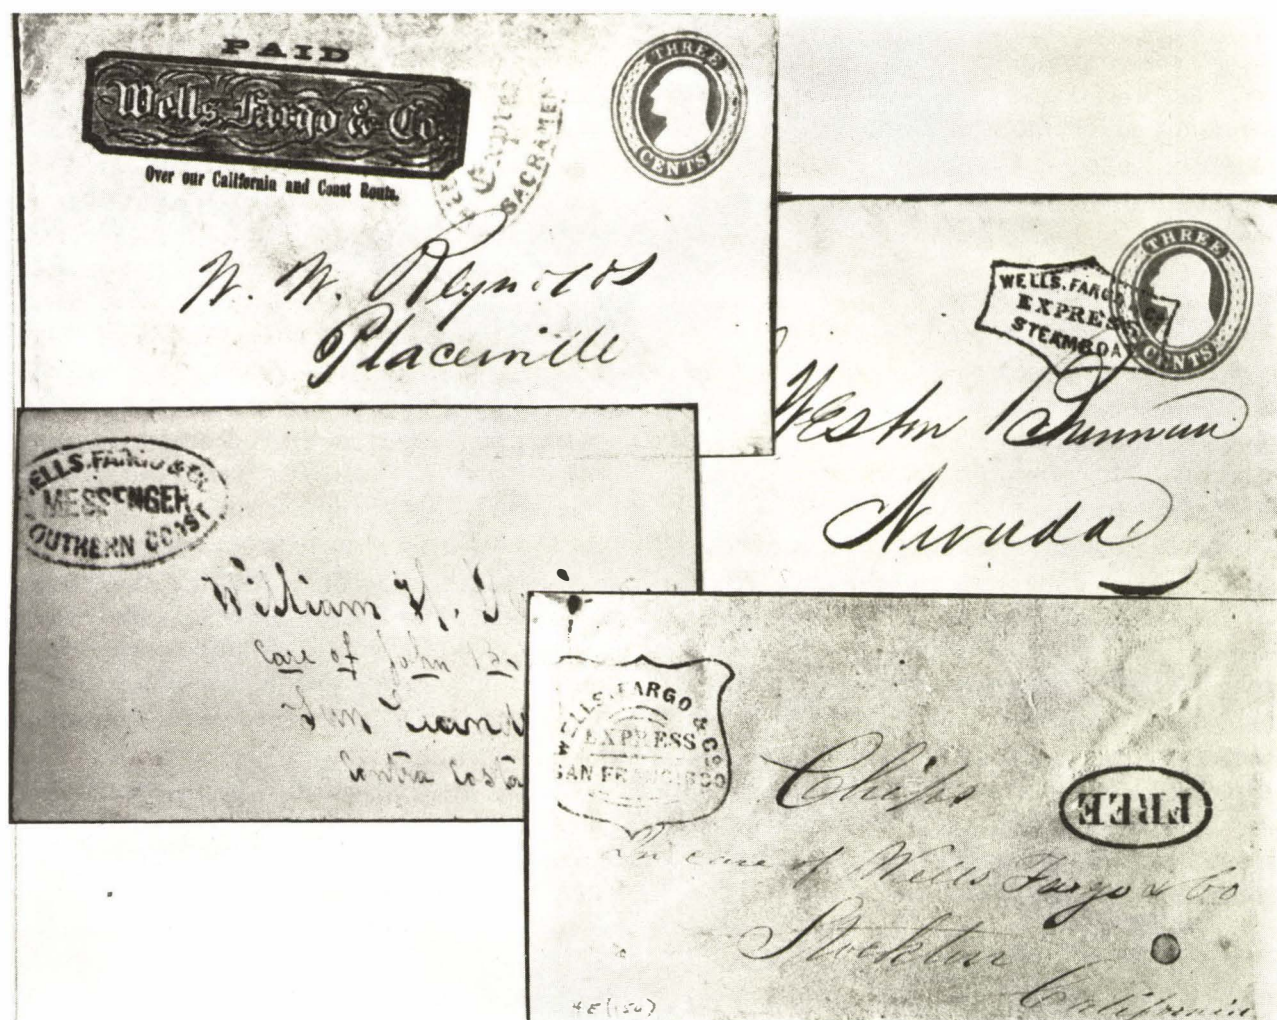 PAID
Wells, Fargo & Co.
Over our California and Coast Route.
Expre
SACRAMEN
THREE
CENTS
W. W. Reynolds
Placerville
THREE
CENTS
WELLS, FARGO & Co
EXPRESS
STEAMBOA
Weston
Nevada
ELLS, FARGO & Co
MESSENGER
OUTHERN COAST
William H.
Care of John
San
Contra Costa
WELLS, FARGO & Co
EXPRESS
SAN FRANCISCO
FREE
Chips
In care of Wells Fargo & Co
Stockton
California